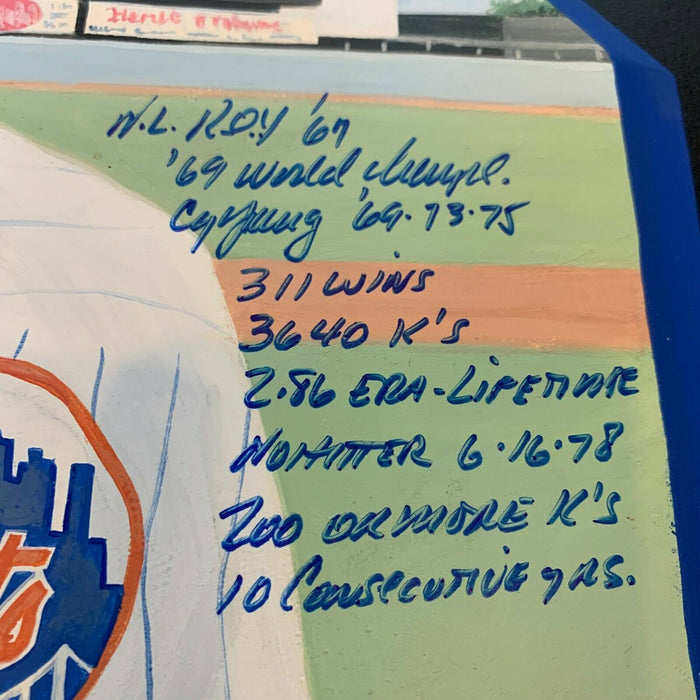 N.L. R.O.Y '67
'69 World Champs.
Cy Young '69·73·75
311 WINS
3640 K'S
2.86 ERA-LIFETIME
NOHITTER 6·16·78
200 OR MORE K'S
10 CONSECUTIVE YRS.